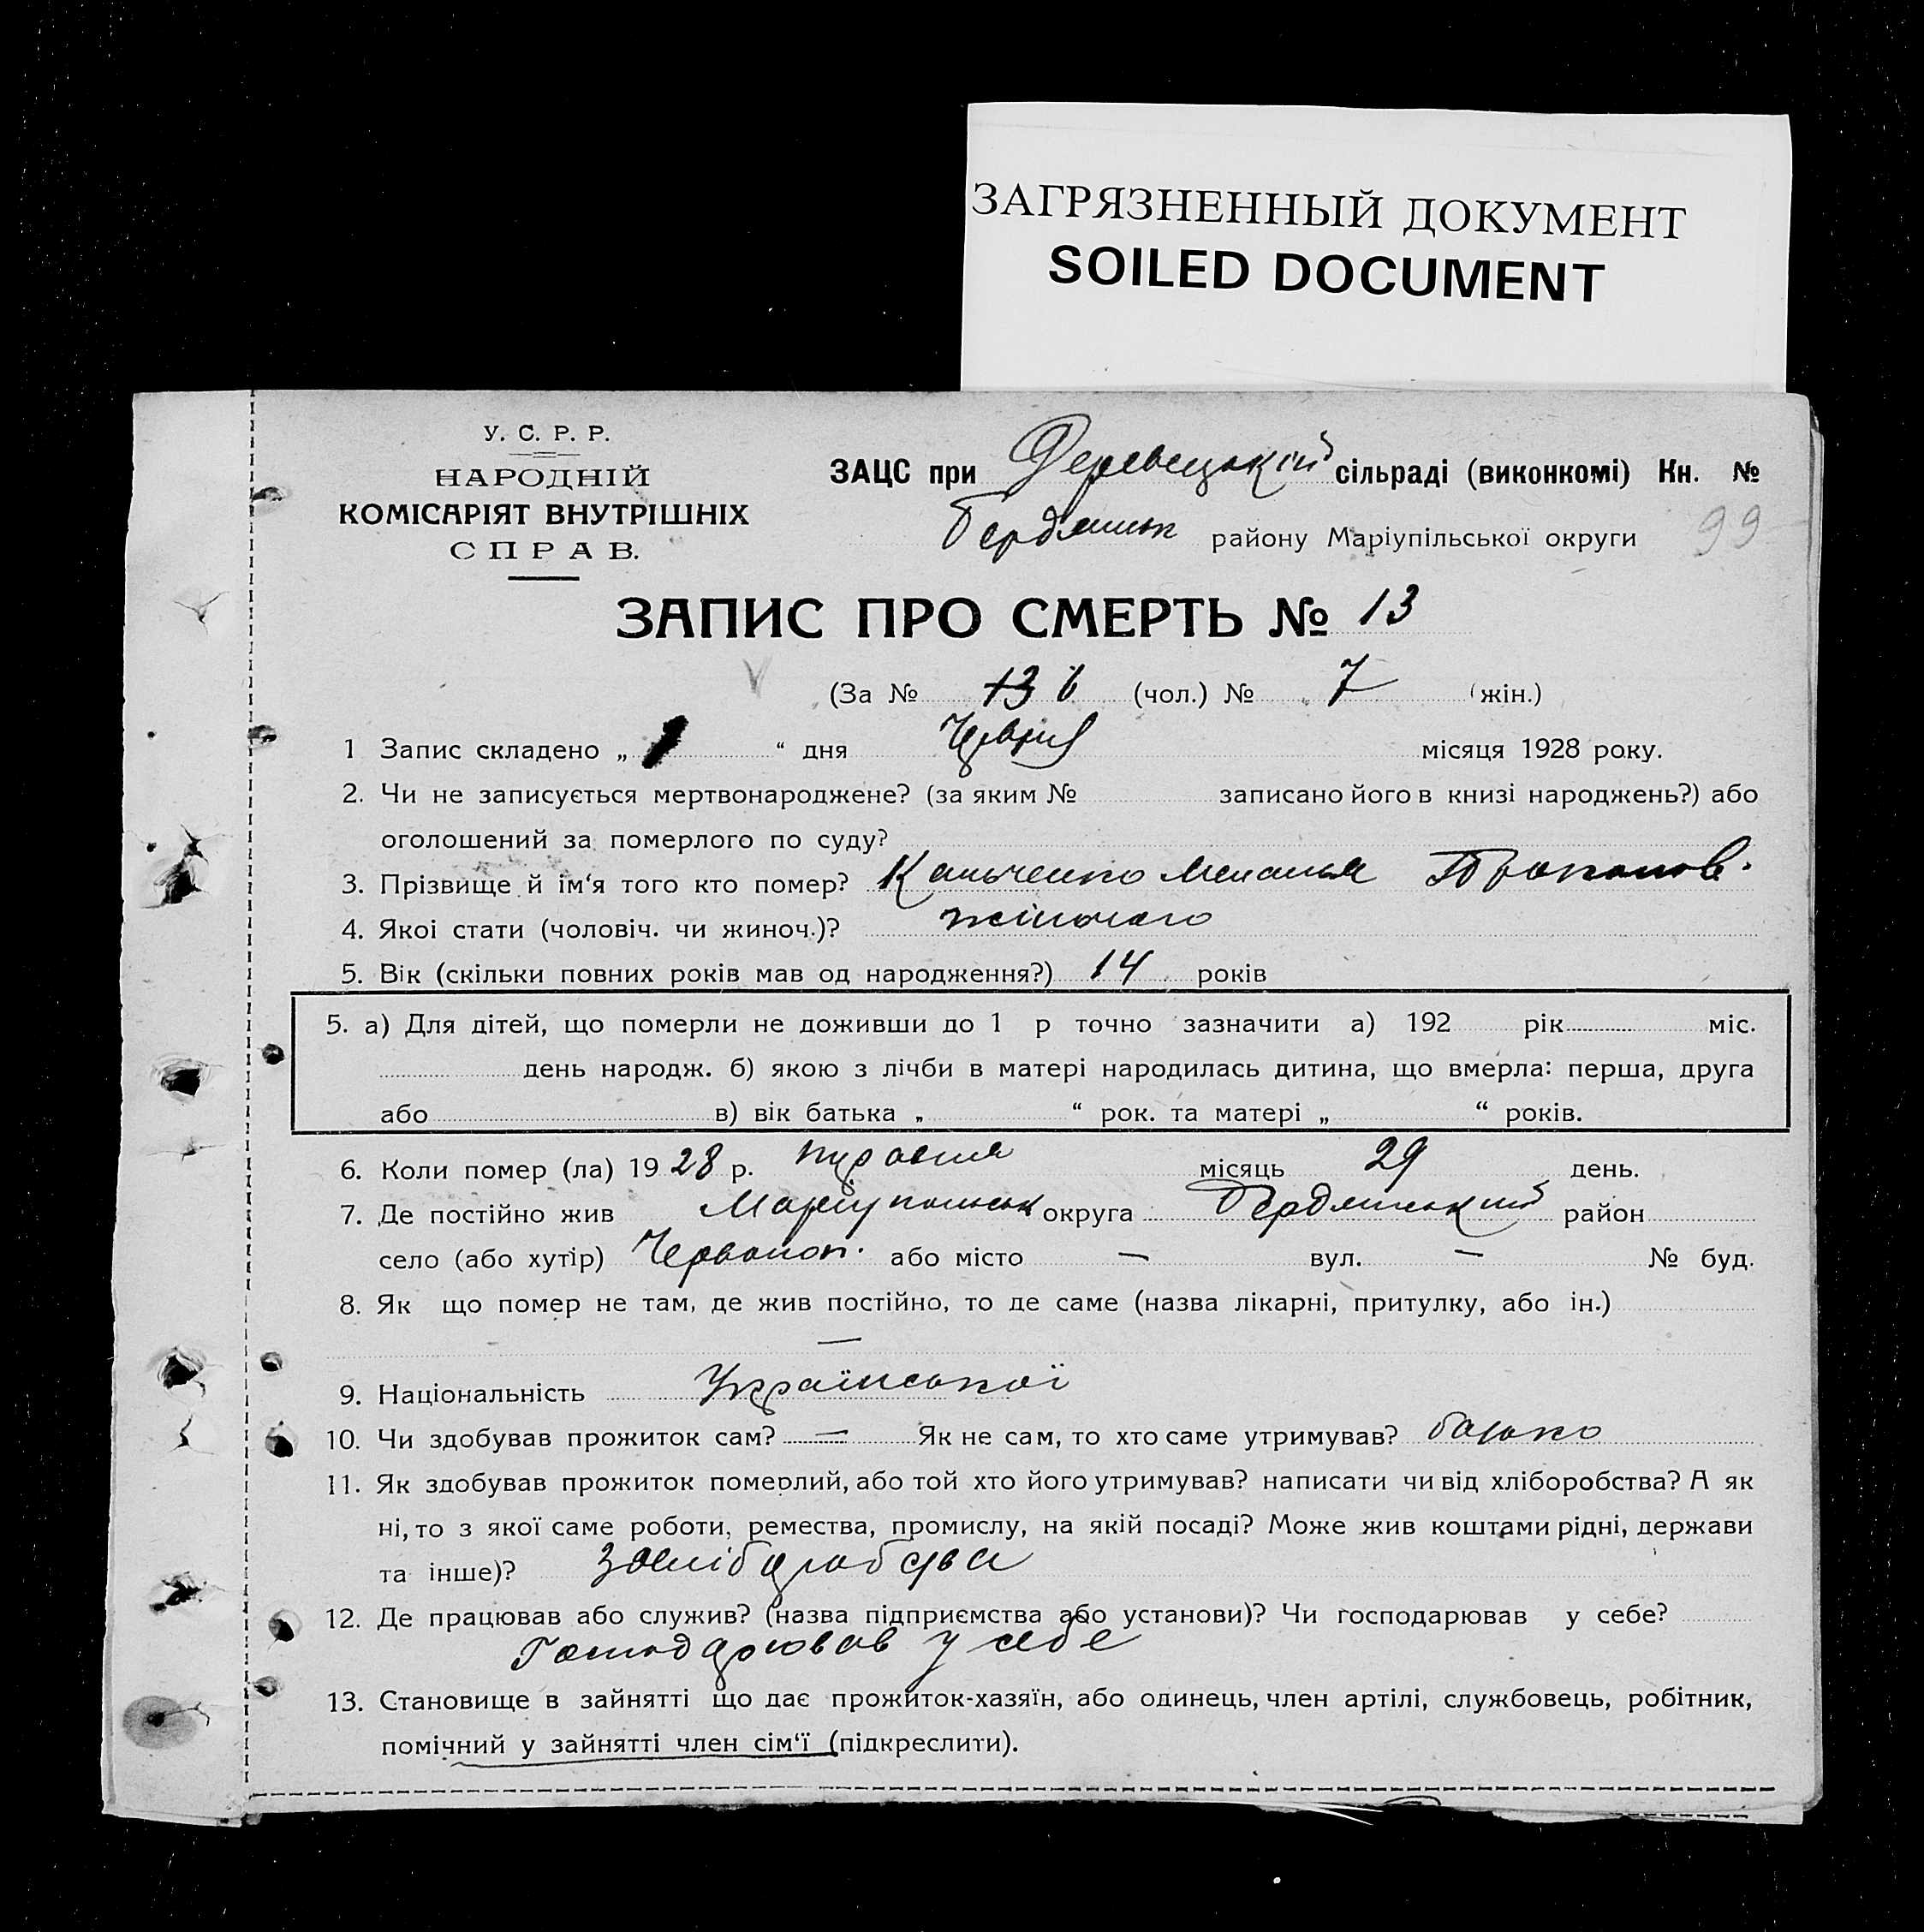 ЗАГРЯЗНЕННЫЙ ДОКУМЕНТ
SOILED DOCUMENT
У. С. Р. Р.
НАРОДНІЙ
КОМІСАРІЯТ ВНУТРІШНІХ
СПРАВ.
ЗАЦС при сільраді (виконкомі) Кн. №
Бердянськ району Маріупільської округи 99
ЗАПИС ПРО СМЕРТЬ № 13
(За № 13 6 (чол.) № 7 (жін.)
1 Запис складено „ “ дня Червня місяця 1928 року.
2. Чи не записується мертвонароджене? (за яким № записано його в книзі народжень?) або
оголошений за померлого по суду?
3. Прізвище й ім‘я того кто помер? Мелания
4. Якоі стати (чоловіч. чи жиноч.)? жіночого
5. Вік (скільки повних років мав од народження?) 14 років
5. а) Для дітей, що померли не доживши до 1 р точно зазначити а) 192 рік міс.
день народж. б) якою з лічби в матері народилась дитина, що вмерла: перша, друга
або в) вік батька „ “ рок. та матері „ “ років.
6. Коли помер (ла) 1928 р. травня місяць 29 день.
7. Де постійно жив Маріупольськ округа Бердянський район
село (або хутір) Червоноп. або місто — вул. — № буд.
8. Як що помер не там, де жив постійно, то де саме (назва лікарні, притулку, або ін.)
—
9. Національність Української
10. Чи здобував прожиток сам? — Як не сам, то хто саме утримував? батько
11. Як здобував прожиток померлий, або той хто його утримував? написати чи від хліборобства? А як
ні, то з якої саме роботи, ремества, промислу, на якій посаді? Може жив коштами рідні, держави
та інше)? з хліборобства
12. Де працював або служив? (назва підприємства або установи)? Чи господарював у себе?
Господарював у себе
13. Становище в зайнятті що дає прожиток-хазяїн, або одинець, член артілі, службовець, робітник,
помічний у зайнятті член сім‘ї (підкреслити).